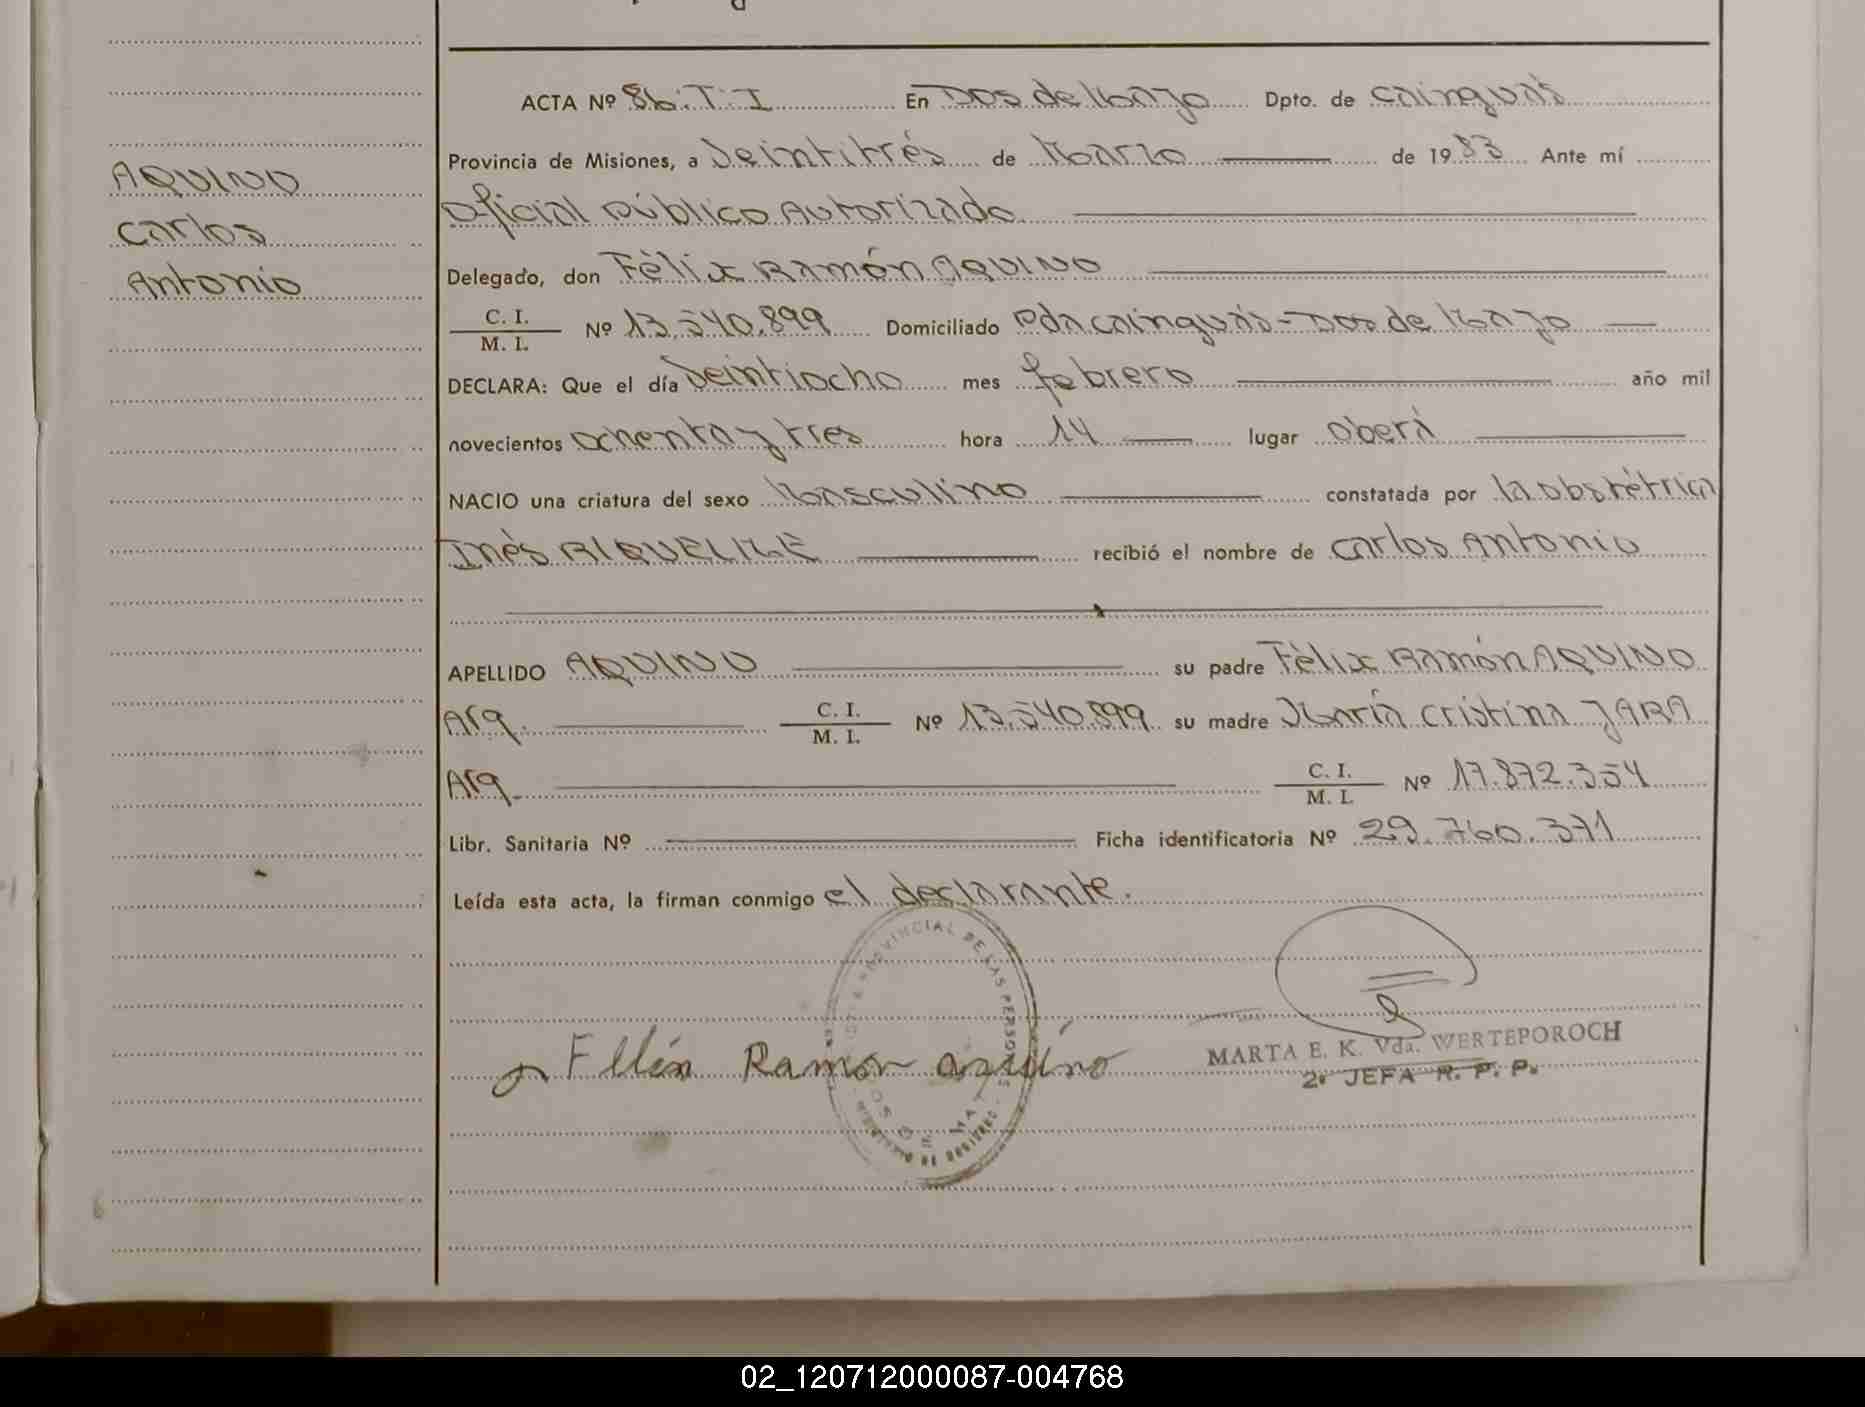 AQUINO
Carlos
Antonio
ACTA Nº 86.T.I En Dos de Mayo Dpto. de Cainguás
Provincia de Misiones, a Veintitrés de Marzo de 1983 Ante mí
Oficial Público Autorizado
Delegado, don Félix Ramón AQUINO
C. I.
M. I. Nº 13.540.899 Domiciliado Pda Cainguás - Dos de Mayo
DECLARA: Que el día Veintiocho mes febrero año mil
novecientos ochenta y tres hora 14 lugar Oberá
NACIO una criatura del sexo Masculino constatada por la obstétrica
Inés RIQUELME recibió el nombre de Carlos Antonio
APELLIDO AQUINO su padre Félix Ramón AQUINO
Arg. C. I.
M. I. Nº 13.540.899 su madre María Cristina JARA
Arg. C. I.
M. I. Nº 17.872.354
Libr. Sanitaria Nº Ficha identificatoria Nº 29.760.371
Leída esta acta, la firman conmigo el declarante.
PROVINCIAL DE LAS PERSONAS
Ramon aquino
MARTA E. K. Vda. WERTEPOROCH
2º JEFA R. P. P.
02_120712000087-004768